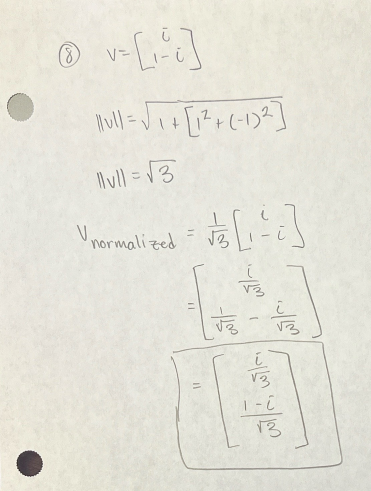 ⑧ v = [i; 1-i]
||v|| = √(1 + [1² + (-1)²])
||v|| = √3
V normalized = 1/√3 [i; 1-i]
= [i/√3; 1/√3 - i/√3]
= [i/√3; (1-i)/√3]